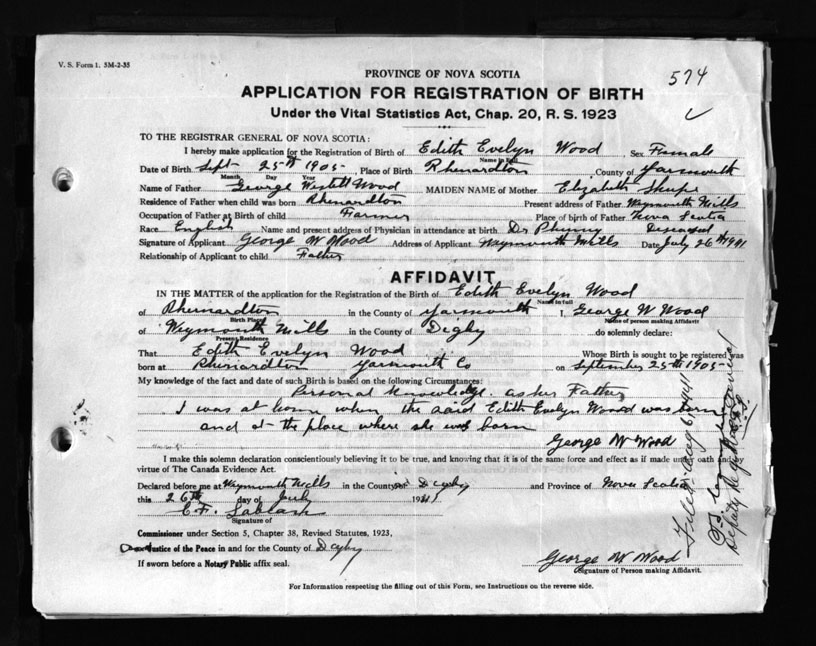 V. S. Form 1. 5M-2-35
574
PROVINCE OF NOVA SCOTIA
APPLICATION FOR REGISTRATION OF BIRTH
Under the Vital Statistics Act, Chap. 20, R. S. 1923
TO THE REGISTRAR GENERAL OF NOVA SCOTIA:
I hereby make application for the Registration of Birth of Edith Evelyn Wood Sex Female
Name in full
Date of Birth Sept 25th 1905, Place of Birth Rhenardton, County of Yarmouth
Month Day Year
Name of Father George Westell Wood MAIDEN NAME of Mother Elizabeth Shupe
Residence of Father when child was born Rhenardton Present address of Father Weymouth Mills
Occupation of Father at Birth of child Farmer Place of birth of Father Nova Scotia
Race English Name and present address of Physician in attendance at birth Dr Phinny Deseased
Signature of Applicant George W Wood Address of Applicant Weymouth Mills Date July 26th 1941
Relationship of Applicant to child Father
AFFIDAVIT
IN THE MATTER of the application for the Registration of the Birth of Edith Evelyn Wood
Name in full
of Rhenardton in the County of Yarmouth I, George W Wood
Birth Place Name of person making Affidavit
of Weymouth Mills in the County of Digby do solemnly declare:
Present Residence
That Edith Evelyn Wood Whose Birth is sought to be registered was
born at Rhenardton Yarmouth Co on September 25th 1905
My knowledge of the fact and date of such Birth is based on the following Circumstances:
Personal Knowledge. as her Father
I was at home when the said Edith Evelyn Wood was born
and at the place where she was born
George W Wood
I make this solemn declaration conscientiously believing it to be true, and knowing that it is of the same force and effect as if made under oath and by
virtue of The Canada Evidence Act.
Declared before me at Weymouth Mills in the County of Digby and Province of Nova Scotia
this 26th day of July 1941
C. F.
Signature of
Commissioner under Section 5, Chapter 38, Revised Statutes, 1923,
Justice of the Peace in and for the County of Digby
If sworn before a Notary Public affix seal.
George W Wood
Signature of Person making Affidavit.
For Information respecting the filling out of this Form, see Instructions on the reverse side.
Filed: Aug 6, 1941
Deputy Registrar